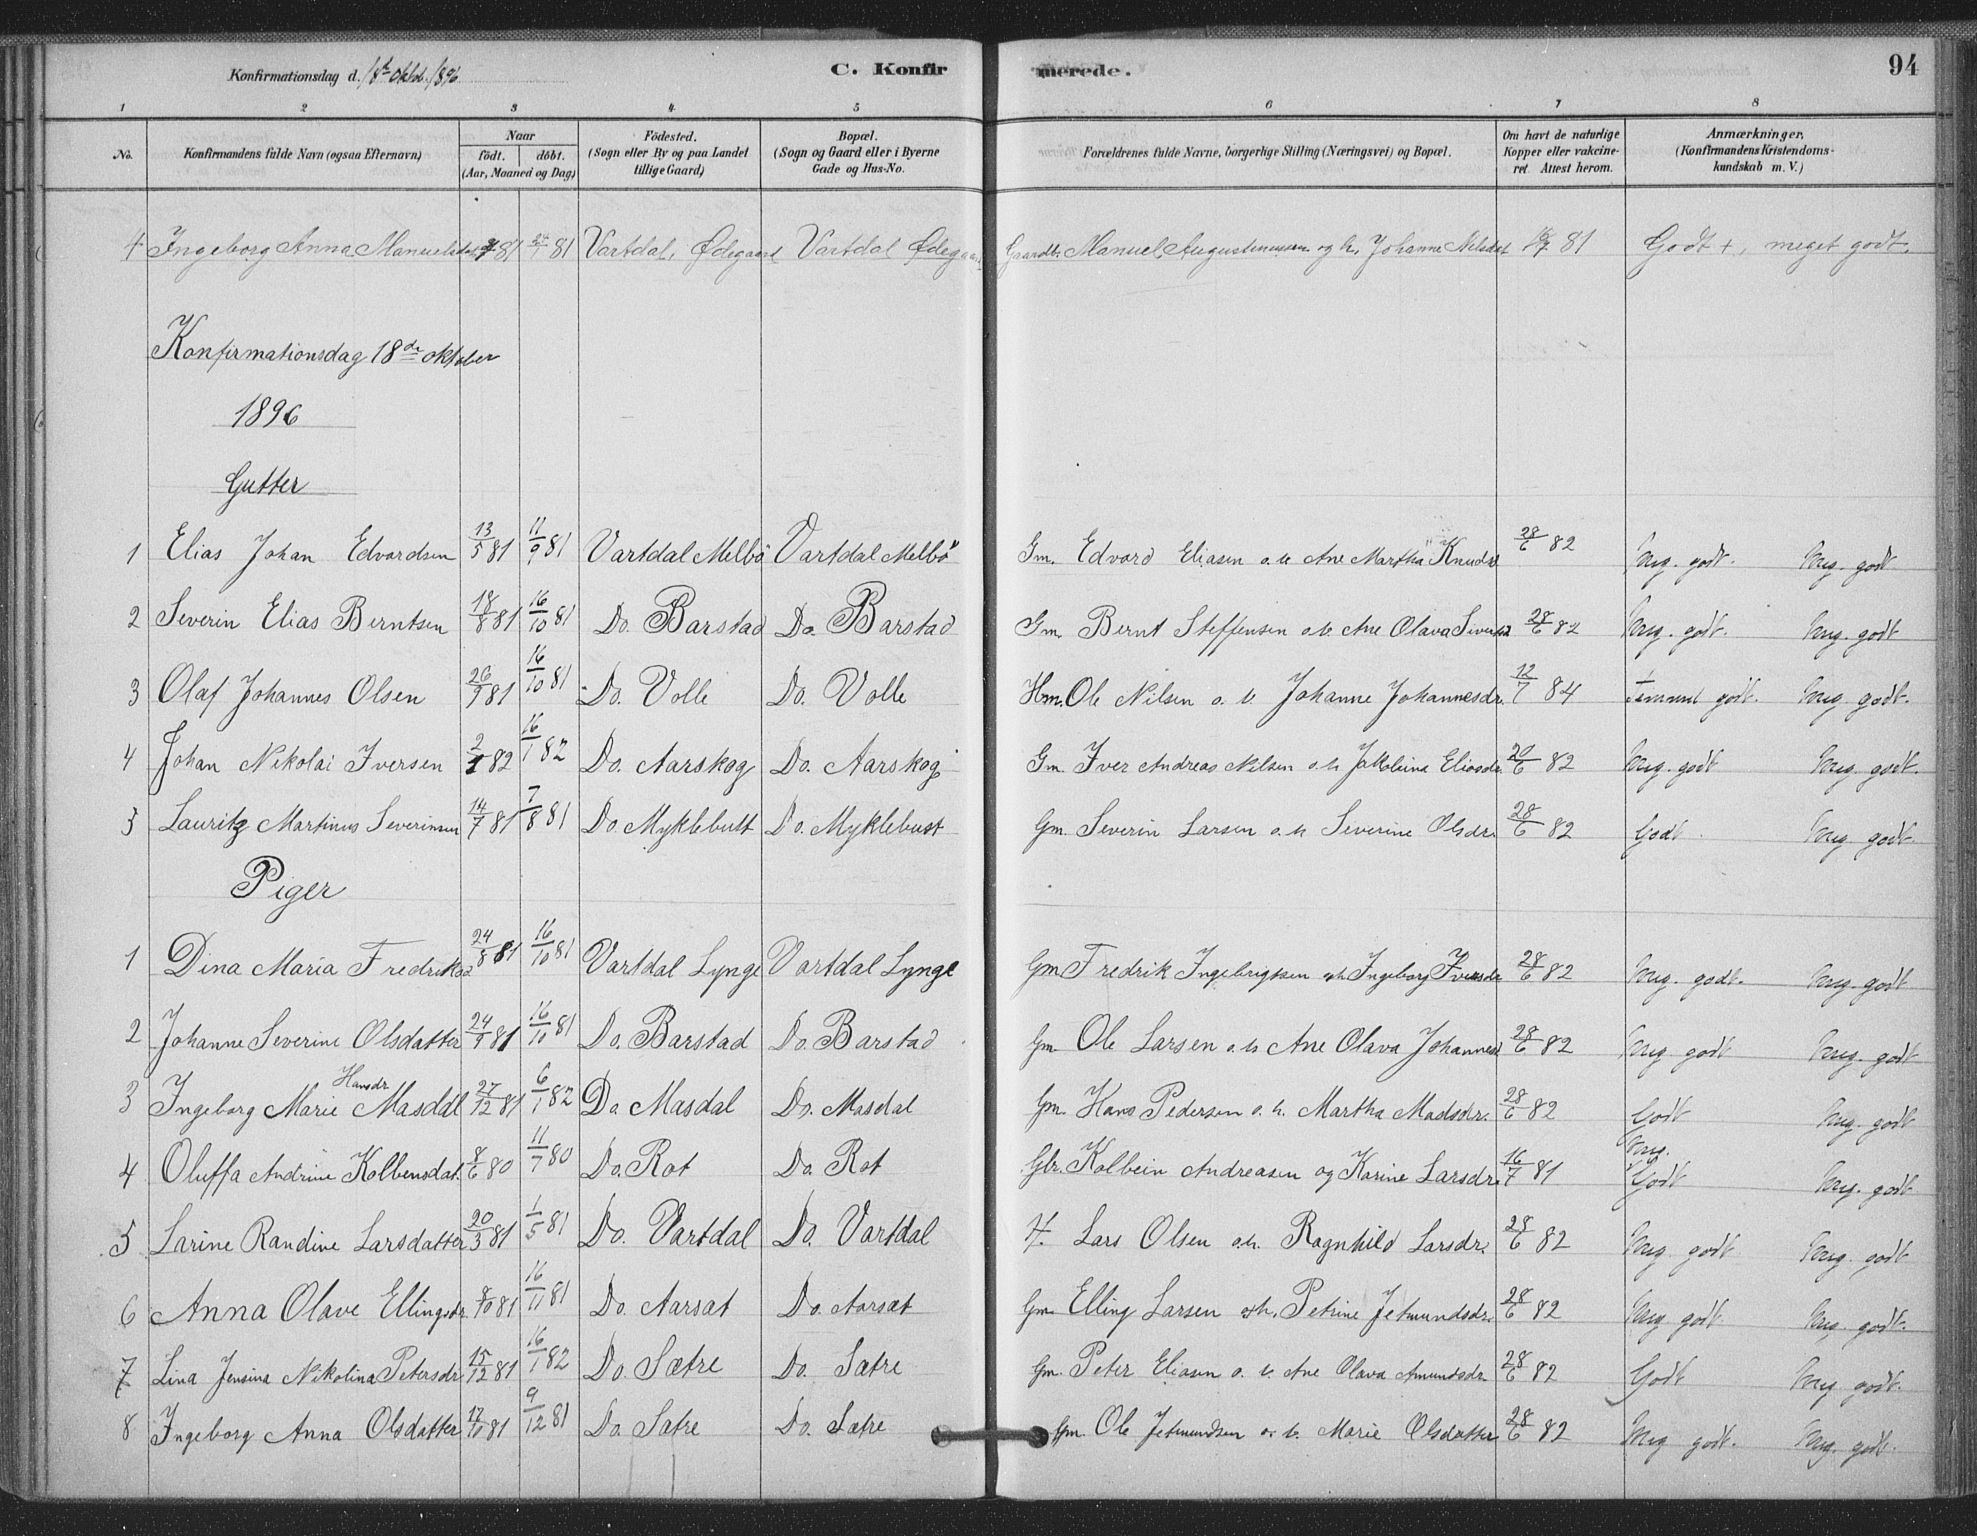 Konfirmationsdag d. 18de oktob. 1896 C. Konfirmerede. 94
1 2 3 4 5 6 7 8
No. Konfirmandens fulde Navn (ogsaa Efternavn) Naar födt. döbt. (Aar, Maaned og Dag) Födested. (Sogn eller By og paa Landet tillige Gaard) Bopæl. (Sogn og Gaard eller i Byerne Gade og Hus-No. Forældrenes fulde Navne, borgerlige Stilling (Næringsvei) og Bopæl. Om havt de naturlige Kopper eller vakcineret. Attest herom. Anmærkninger, (Konfirmandens Kristendomskundskab m. V.)
4 Ingeborg Anna Manuelsdat 81 24/1 81 Vartdal, Ødegaard Vartdal Ødegaard Gaardb. Manuel Augustinussen og h. Johanne Nilsdat 81 Godt +, meget godt.
Konfirmationsdag 18de oktober
1896
Gutter
1 Elias Johan Edvardsen 13/5 81 11/9 81 Vartdal Melbö Vartdal Melbö Gm. Edvard Eliasen o. h. Ane Martha Knudsd 28/6 82 Meg. godt. Meg. godt
2 Severin Elias Berntsen 18/8 81 16/10 81 Do. Barstad Do. Barstad Gm. Bernt Steffensen o. h. Ane Olava Sivertsd 28/6 82 Meg. godt. Meg. godt
3 Olaf Johannes Olsen 26/9 81 16/10 81 Do. Volle Do. Volle Hm. Ole Nilsen o. h. Johanne Johannesdr. 12/7 84 Temmel godt. Meg. godt.
4 Johan Nikolai Iversen 2/1 82 16/1 82 Do. Aarskog Do. Aarskog Gm. Iver Andreas Nilsen o. h. Jakobina Eliasdr. 20/6 82 Meg. godt Meg. godt.
5 Lauritz Martinus Severinsen 14/7 81 7/8 81 Do. Myklebust Do. Myklebust Gm. Severin Larsen o. h. Severine Olsdr. 28/6 82 Godt Meg. godt.
Piger
1 Dina Maria Fredriksd 24/8 81 16/10 81 Vartdal Lynge Vartdal Lynge Gm Fredrik Ingebrigtsen oh. Ingeborg Iversdr 28/6 82 Meg. godt. Meg. godt
2 Johanne Severine Olsdatter 24/9 81 16/10 81 Do. Barstad Do. Barstad Gm. Ole Larsen o. h. Ane Olava Johannesd 28/6 82 Meg godt Meg. godt
3 Ingeborg Marie Hansdr Masdal 27/12 81 6/1 82 Do Masdal Do. Masdal Gm. Hans Pedersen o. h. Martha Madsdr. 28/6 82 Godt Meg. godt
4 Oluffa Andrine Kolbensdat. 8/6 80 11/7 80 Do. Rot Do. Rot Gbr. Kolbein Andreasen og Karine Larsdr. 16/7 81 Meg. Godt Meg. godt
5 Larine Randine Larsdatter 20/3 81 1/5 81 Do. Vartdal Do. Vartdal Lars Olsen o. h. Ragnhild Larsdr. 28/6 82 Meg godt Meg. godt
6 Anna Olave Ellingsdr. 8/10 81 16/11 81 Do. Aarsæt Do. Aarsæt Gm. Elling Larsen oh. Petrine Jetmundsdr. 28/6 82 Meg godt Meg. godt.
7 Lina Jensina Nikolina Petersdr 15/12 81 16/1 82 Do. Sætre Do. Sætre Gm. Peter Eliasen o. h. Ane Olava Amundsdr 28/6 82 Godt Meg godt.
8 Ingeborg Anna Olsdatter 17/10 81 9/12 81 Do. Sætre Do. Sætre Gm. Ole Jetmundsen o. h. Marie Olsdatter 28/6 82 Meg godt. Meg. godt.